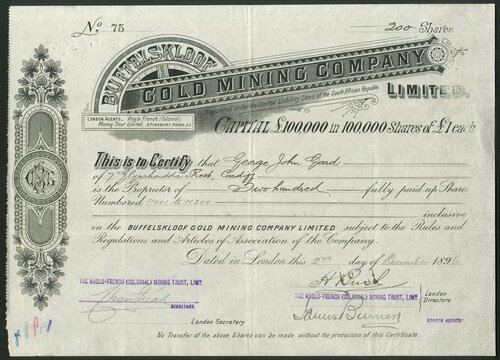 No 75 200 Shares
BUFFELSKLOOF
GOLD MINING COMPANY
LIMITED.
Registered under the Limited Liability Laws of the South African Republic
LONDON AGENTS. Anglo French (Colonial)
Mining Trust Limited.
CAPITAL £100,000 in 100,000 Shares of £1 each
This is to Certify that George John Gard
of 7 Road, Cardiff
is the Proprietor of Two hundred fully paid up Shares
Numbered 11001 to 11200
inclusive
in the BUFFELSKLOOF GOLD MINING COMPANY LIMITED, subject to the Rules and
Regulations and Articles of Association of the Company.
Dated in London this 2nd day of December 1896
THE ANGLO-FRENCH (COLONIAL) MINING TRUST, LIMD
SECRETARY.
London Secretary
London
Directors
THE ANGLO-FRENCH (COLONIAL) MINING TRUST, LIMD
LONDON AGENTS.
No Transfer of the above Shares can be made without the production of this Certificate.